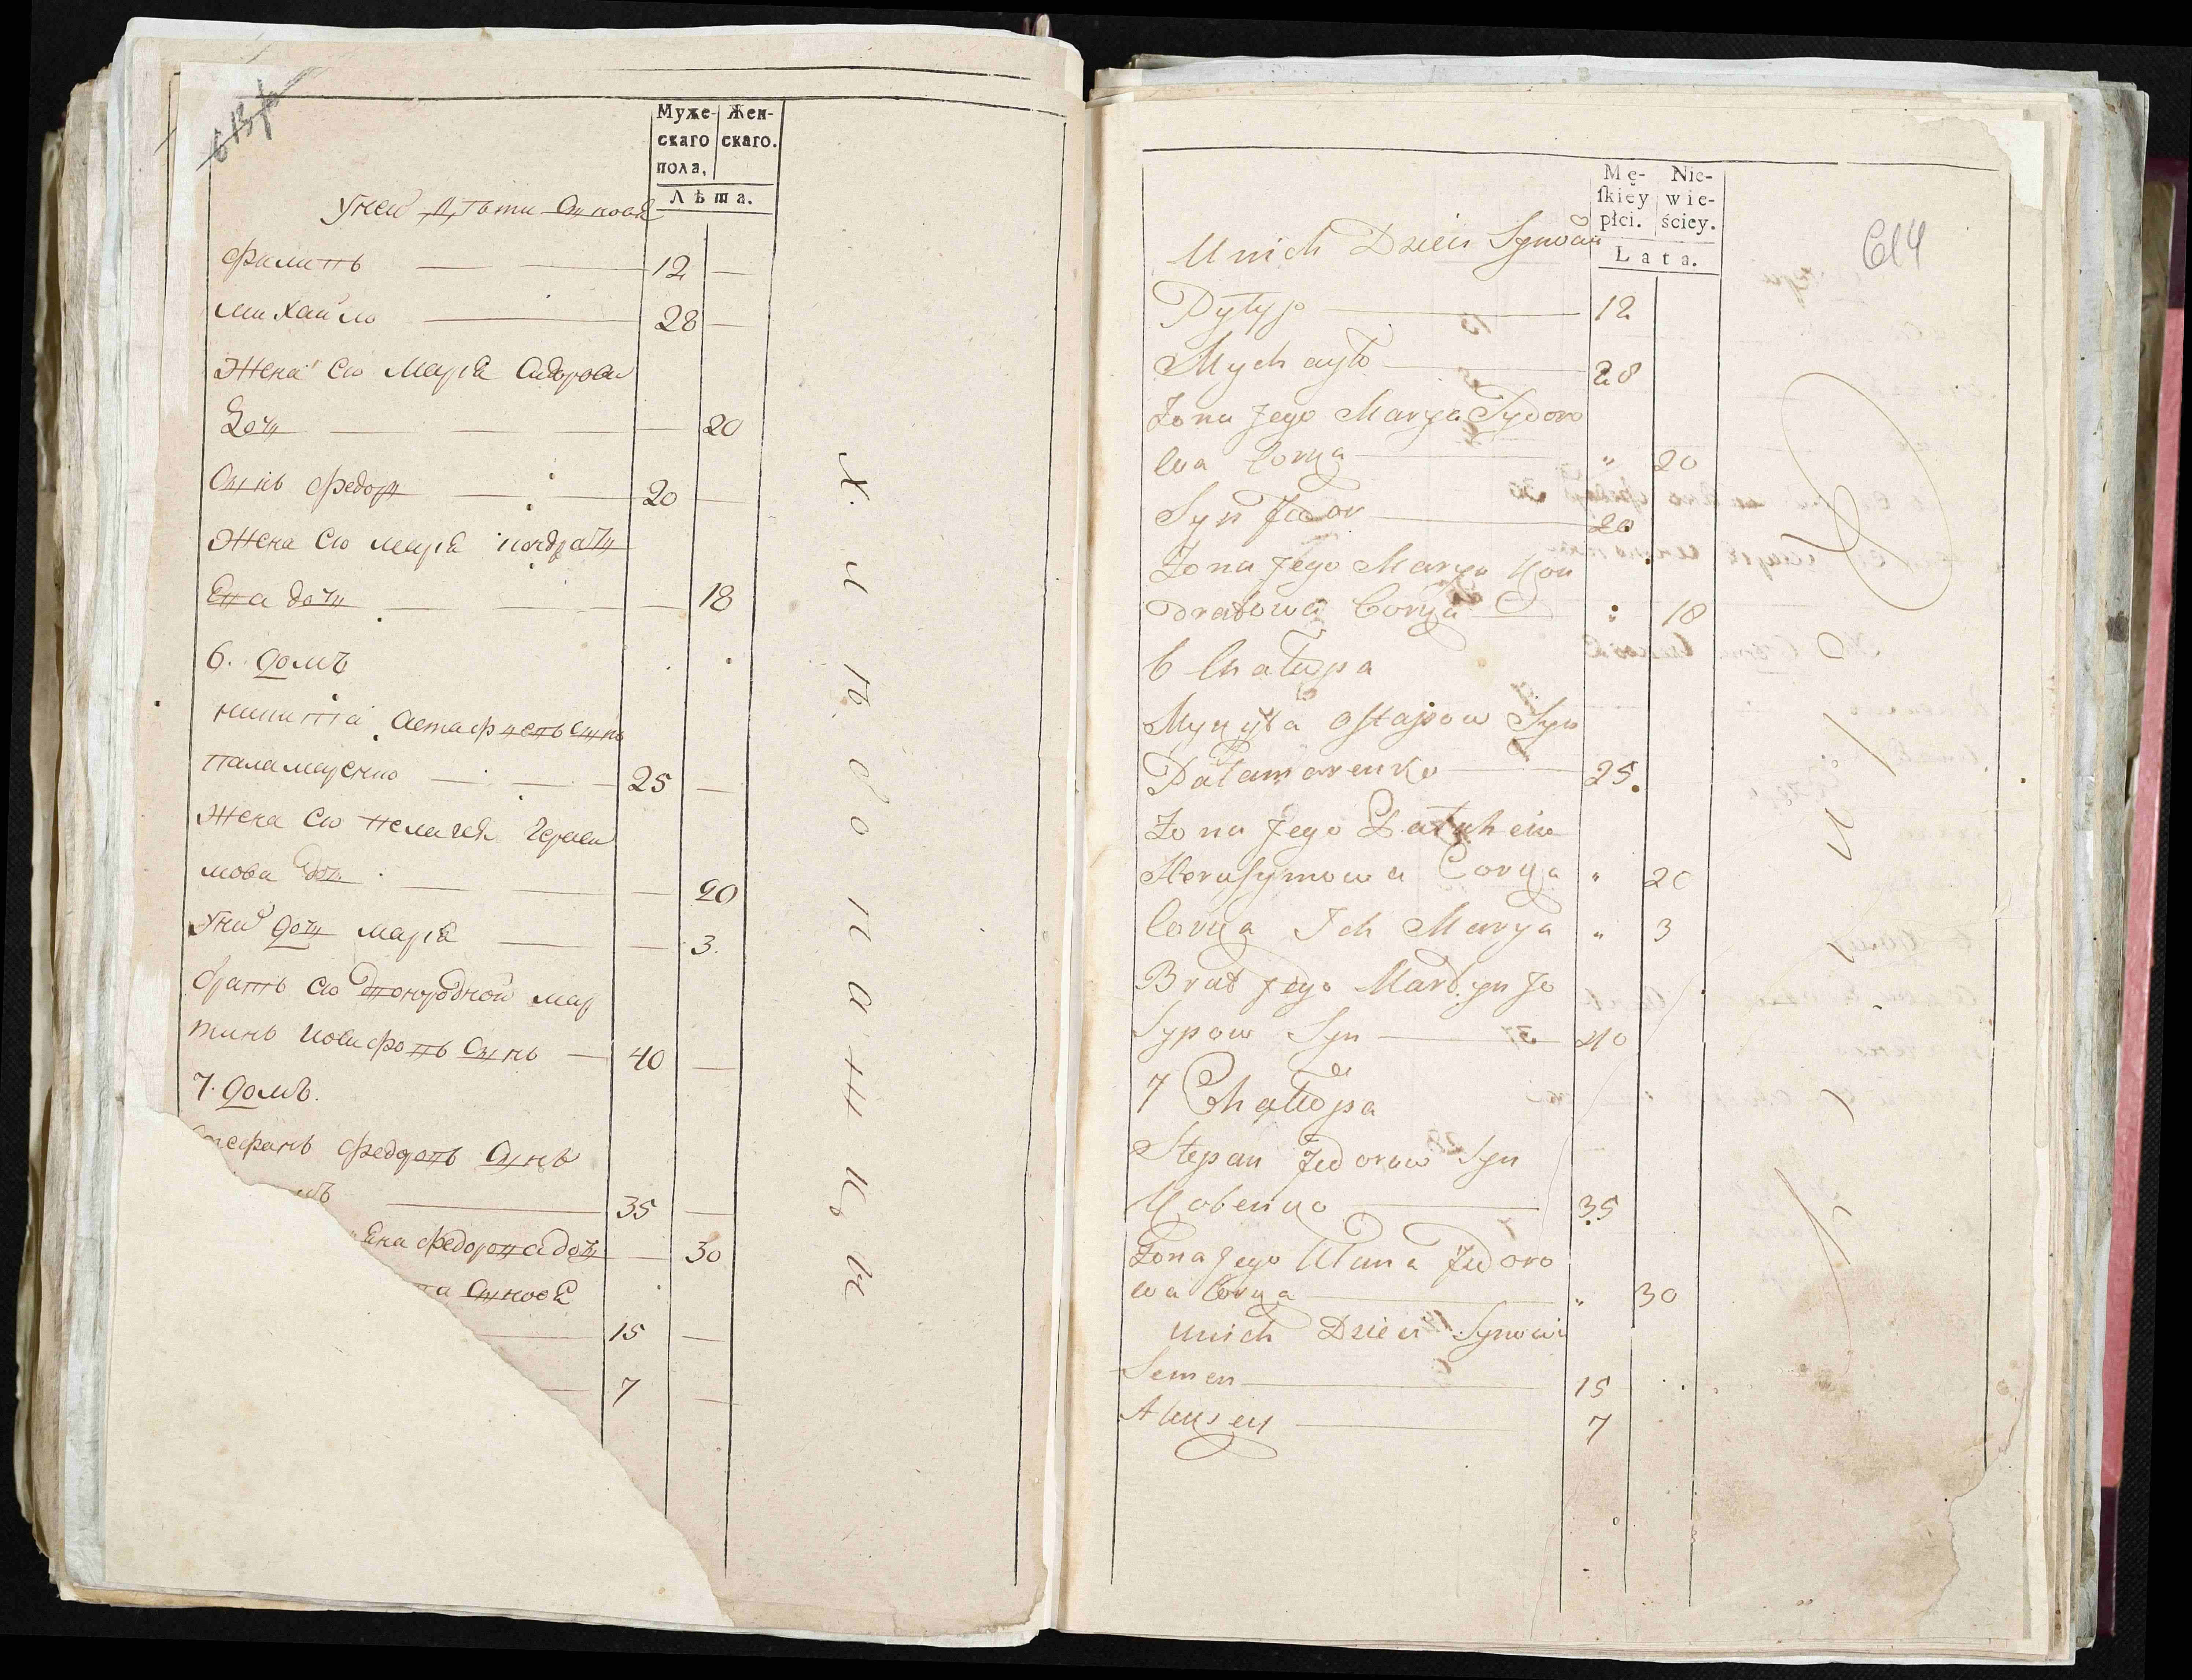 613/о
Муже- Жен-
скаго скаго.
пола.
Лѣта.
У неи дѣти Синовя
Филипъ — 12 —
Михайло — 28 —
Жена Ею Марія Сидорова
Дочь — — 20
Синъ Федоръ — 20 —
Жена Ею Марія Кондрать
Ева дочь — — 18
6. Домъ
Никита Астафиевъ Синъ
Паламаренко — 25 —
Жена Ею Пелагея Гераси
мова Дочь — — 20
У нихъ Дочь Марія — — 3.
братъ Ею Двоюродной Мар
тинъ Иосифовъ Синъ — 40 —
7. Домъ.
Стефанъ Федоровъ Синъ
— 35 —
Ена Федорова дочь — 30
Синовя
15 —
7 —
Хлѣбопашцы
Mę- Nie-
ſkiey wie-
płci. ściey.
Lata.
614
U nich Dzieci Synowie
Pylyp — 12
Mychayło — 28
Zona Jego Marya Sydoro
wa Corka — " 20
Syn Fedor — 20
Zona Jego Marya Kon
dratowa Corka — : 18
6 Chałupa
Mykyta Ostapow Syn
Pałamarenko — 25.
Zona Jego Pałaheia
Herasymowa Corka " 20
Corka Ich Marya " 3
Brat Jego Martyn Jo
sypow Syn — 40
7 Chałupa
Stepan Fedorow Syn
Kobenko — 35
Zona Jego Ulana Fedoro
wa Corka — " 30
U nich Dzieci Synowie
Semen — 15
Alexey — 7